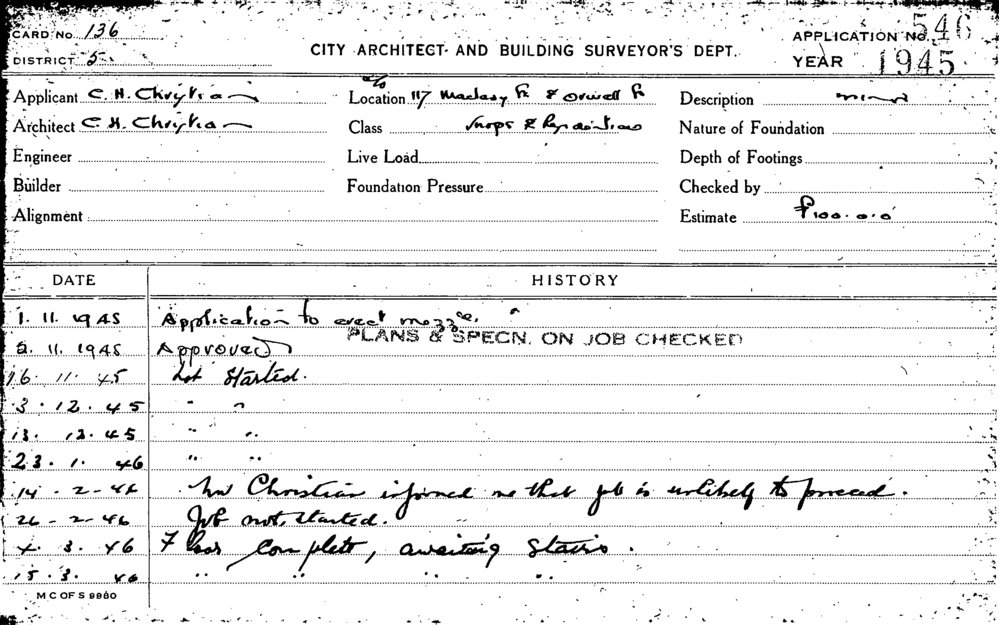 CARD No. 136
DISTRICT 5
CITY ARCHITECT AND BUILDING SURVEYOR'S DEPT.
APPLICATION No. 546
YEAR 1945
Applicant C. H. Christian
c/o
Location 117 St & Orwell St
Description
Architect C. H. Christian
Class Shops &
Nature of Foundation
Engineer
Live Load
Depth of Footings
Builder
Foundation Pressure
Checked by
Alignment
Estimate £100.0.0
DATE HISTORY
1. 11. 1945 Application to erect mezz
PLANS & SPECN. ON JOB CHECKED
2. 11. 1945 Approved
16. 11. 45 Not Started.
3. 12. 45 " "
13. 12. 45 " "
23. 1. 46 " "
14 - 2 - 46 Mr Christian informed me that job is unlikely to proceed.
26 - 2 - 46 Job not started.
4. 3. 46 Floor complete, awaiting stairs.
15. 3. 46 " " " "
M C OF S 9980